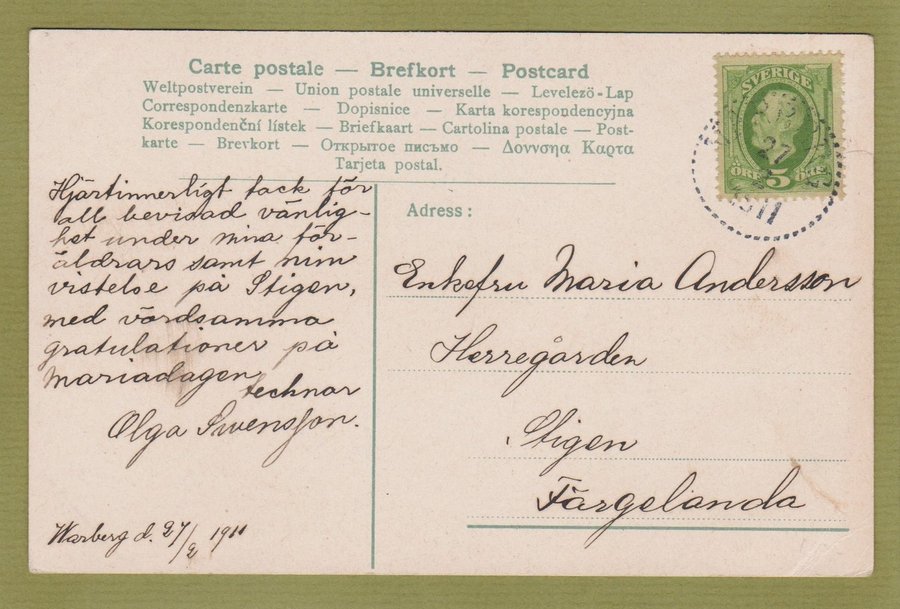 Carte postale — Brefkort — Postcard
Weltpostverein — Union postale universelle — Levelező-Lap
Correspondenzkarte — Dopisnice — Karta korespondencyjna
Korespondenční lístek — Briefkaart — Cartolina postale — Post-
karte — Brevkort — Открытое письмо — Δοννσηα Καρτα
Tarjeta postal.
SVERIGE
ÖRE 5 ÖRE
27
2
1911
Hjärtinnerligt tack för
all bevisad vänlig-
het under mina för-
äldrars samt min
vistelse på Stigen,
med vördsamma
gratulationer på
Mariadagen
tecknar
Olga Swensson.
Warberg d. 27/2 1911
Adress:
Enkefru Maria Andersson
Herregården
Stigen
Färgelanda